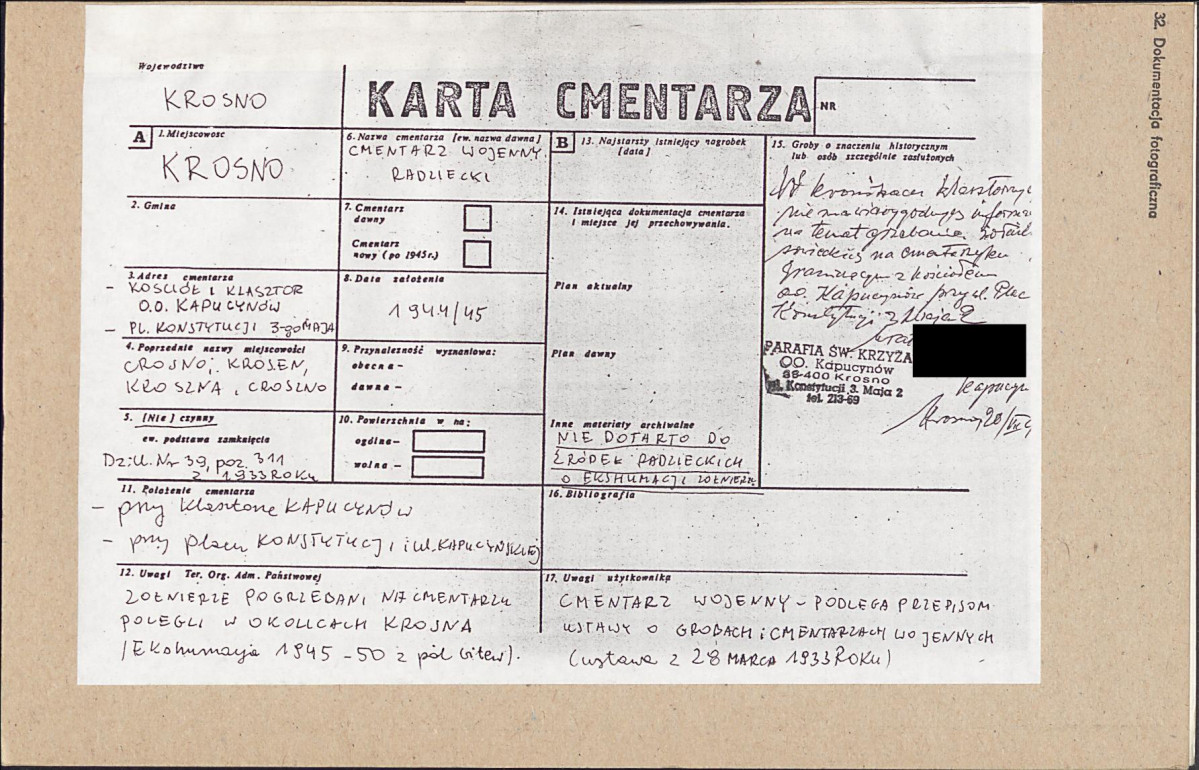 32. Dokumentacja fotograficzna
Województwo
KROSNO
KARTA CMENTARZA
NR
A
1. Miejscowość
KROSNO
2. Gmina
3. Adres cmentarza
- KOŚCIÓŁ I KLASZTOR
O.O. KAPUCYNÓW
- PL. KONSTYTUCJI 3-go MAJA
4. Poprzednie nazwy miejscowości
CROSNO, KROSEN,
KROSZNA, CROSZNO
5. [Nie] czynny
ew. podstawa zamknięcia
Dz.U. Nr 39, poz. 311
z 1933 ROKU
6. Nazwa cmentarza [ew. nazwa dawna]
CMENTARZ WOJENNY
RADZIECKI
7. Cmentarz
dawny
Cmentarz
nowy (po 1945 r.)
8. Data założenia
1944/45
9. Przynależność wyznaniowa:
obecna -
dawna -
10. Powierzchnia w ha:
ogólna -
wolna -
B
13. Najstarszy istniejący nagrobek
[data]
14. Istniejąca dokumentacja cmentarza
i miejsce jej przechowywania.
Plan aktualny
Plan dawny
Inne materiały archiwalne
NIE DOTARTO DO
ŹRÓDEŁ RADZIECKICH
O EKSHUMACJI ŻOŁNIERZY
15. Groby o znaczeniu historycznym
lub osób szczególnie zasłużonych
W kronikach
nie ma wiarygodnych
na temat grzebania
na cmentarzyku
graniczącym z kościołem
oo. Kapucynów przy ul. Plac
Konstytucji 3 Maja 2
PARAFIA ŚW. KRZYŻA
OO. Kapucynów
38-400 Krosno
pl. Konstytucji 3. Maja 2
tel. 213-69
Krosno 20/
11. Położenie cmentarza
- przy klasztorze KAPUCYNÓW
- przy placu KONSTYTUCJI i ul. KAPUCYŃSKIEJ
16. Bibliografia
12. Uwagi Ter. Org. Adm. Państwowej
ŻOŁNIERZE POGRZEBANI NA CMENTARZU
POLEGLI W OKOLICACH KROSNA
(Ekshumacja 1945-50 z pól bitew).
17. Uwagi użytkownika
CMENTARZ WOJENNY - PODLEGA PRZEPISOM
USTAWY O GROBACH i CMENTARZACH WOJENNYCH
(ustawa z 28 MARCA 1933 ROKU)